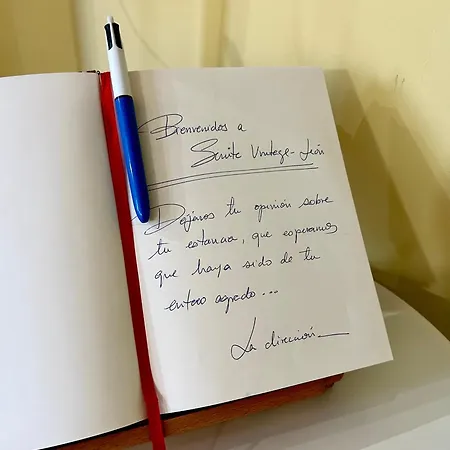 Bienvenidos a
Suite Vintage-León
Déjanos tu opinión sobre
tu estancia, que esperamos
que haya sido de tu
entero agrado...
La dirección